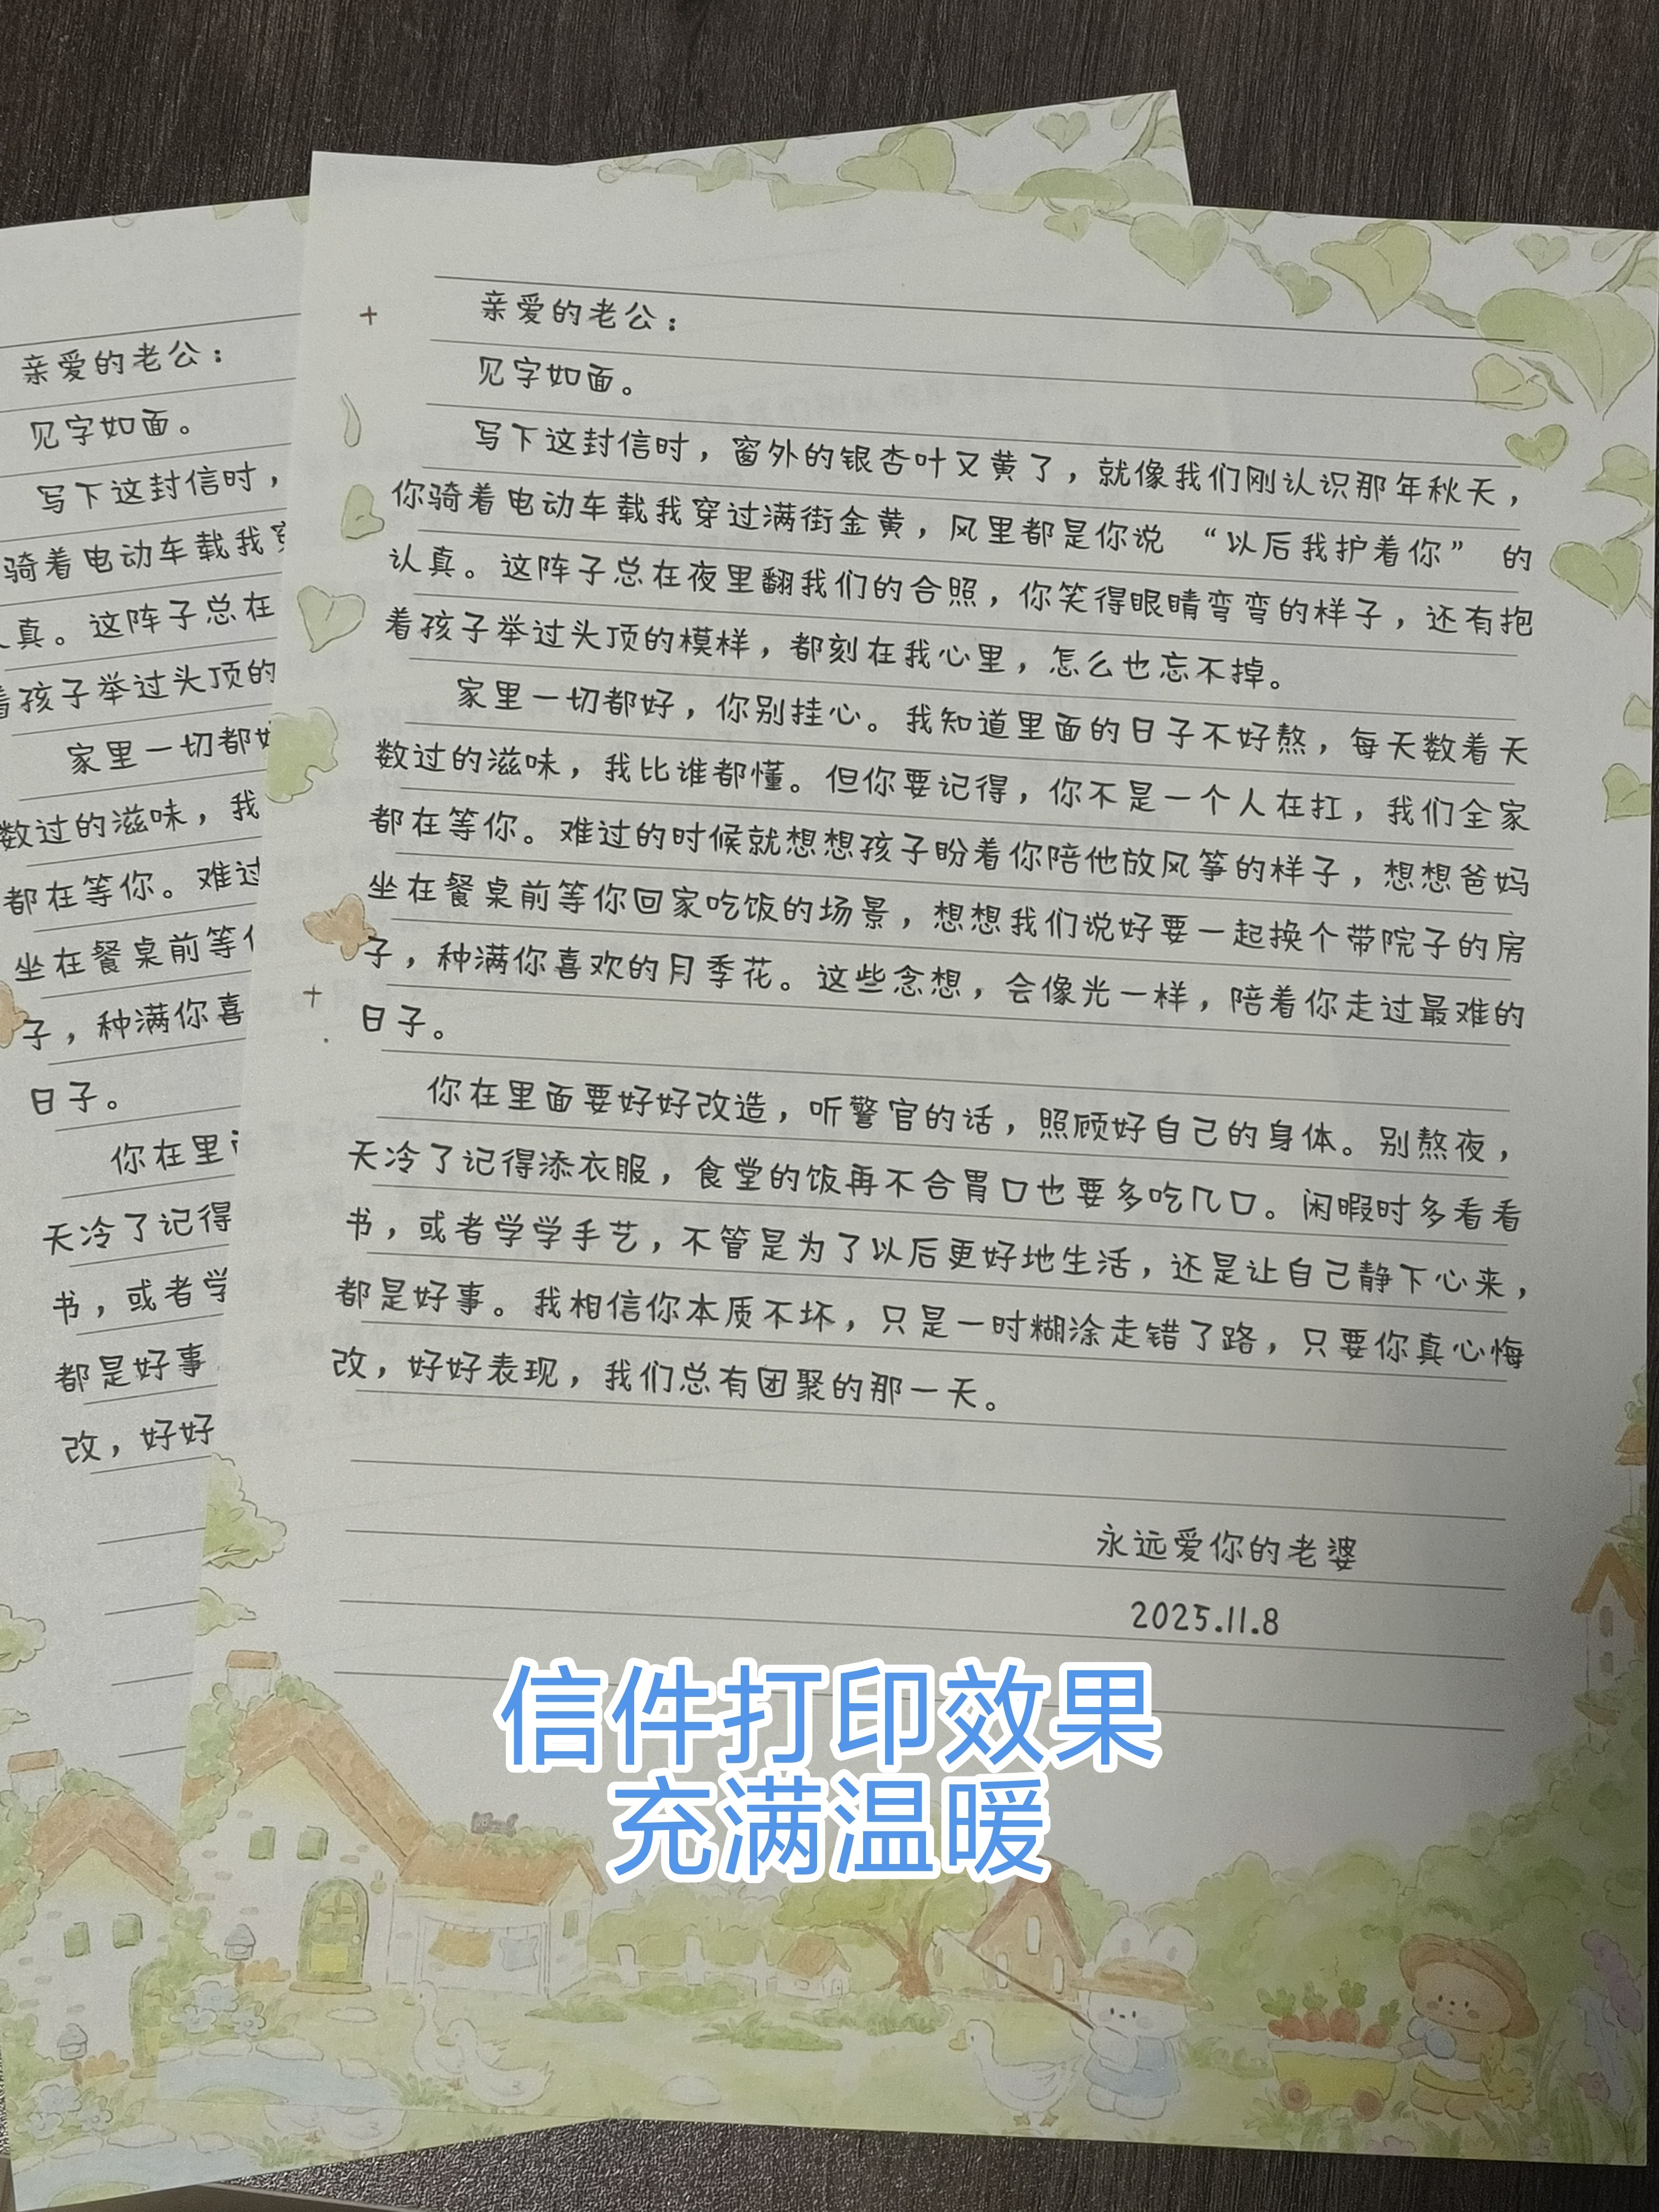 亲爱的老公：
见字如面。
写下这封信时，窗外的银杏叶又黄了，就像我们刚认识那年秋天，
你骑着电动车载我穿过满街金黄，风里都是你说“以后我护着你”的
认真。这阵子总在夜里翻我们的合照，你笑得眼睛弯弯的样子，还有抱
着孩子举过头顶的模样，都刻在我心里，怎么也忘不掉。
家里一切都好，你别挂心。我知道里面的日子不好熬，每天数着天
数过的滋味，我比谁都懂。但你要记得，你不是一个人在扛，我们全家
都在等你。难过的时候就想想孩子盼着你陪他放风筝的样子，想想爸妈
坐在餐桌前等你回家吃饭的场景，想想我们说好要一起换个带院子的房
子，种满你喜欢的月季花。这些念想，会像光一样，陪着你走过最难的
日子。
你在里面要好好改造，听警官的话，照顾好自己的身体。别熬夜，
天冷了记得添衣服，食堂的饭再不合胃口也要多吃几口。闲暇时多看看
书，或者学学手艺，不管是为了以后更好地生活，还是让自己静下心来，
都是好事。我相信你本质不坏，只是一时糊涂走错了路，只要你真心悔
改，好好表现，我们总有团聚的那一天。
永远爱你的老婆
2025.11.8
亲爱的老公：
见字如面。
写下这封信时，
骑着电动车载我穿
真。这阵子总在
着孩子举过头顶的
家里一切都好
数过的滋味，我
都在等你。难过
坐在餐桌前等你
子，种满你喜
日子。
你在里
天冷了记得
书，或者学
都是好事
改，好好
信件打印效果
充满温暖